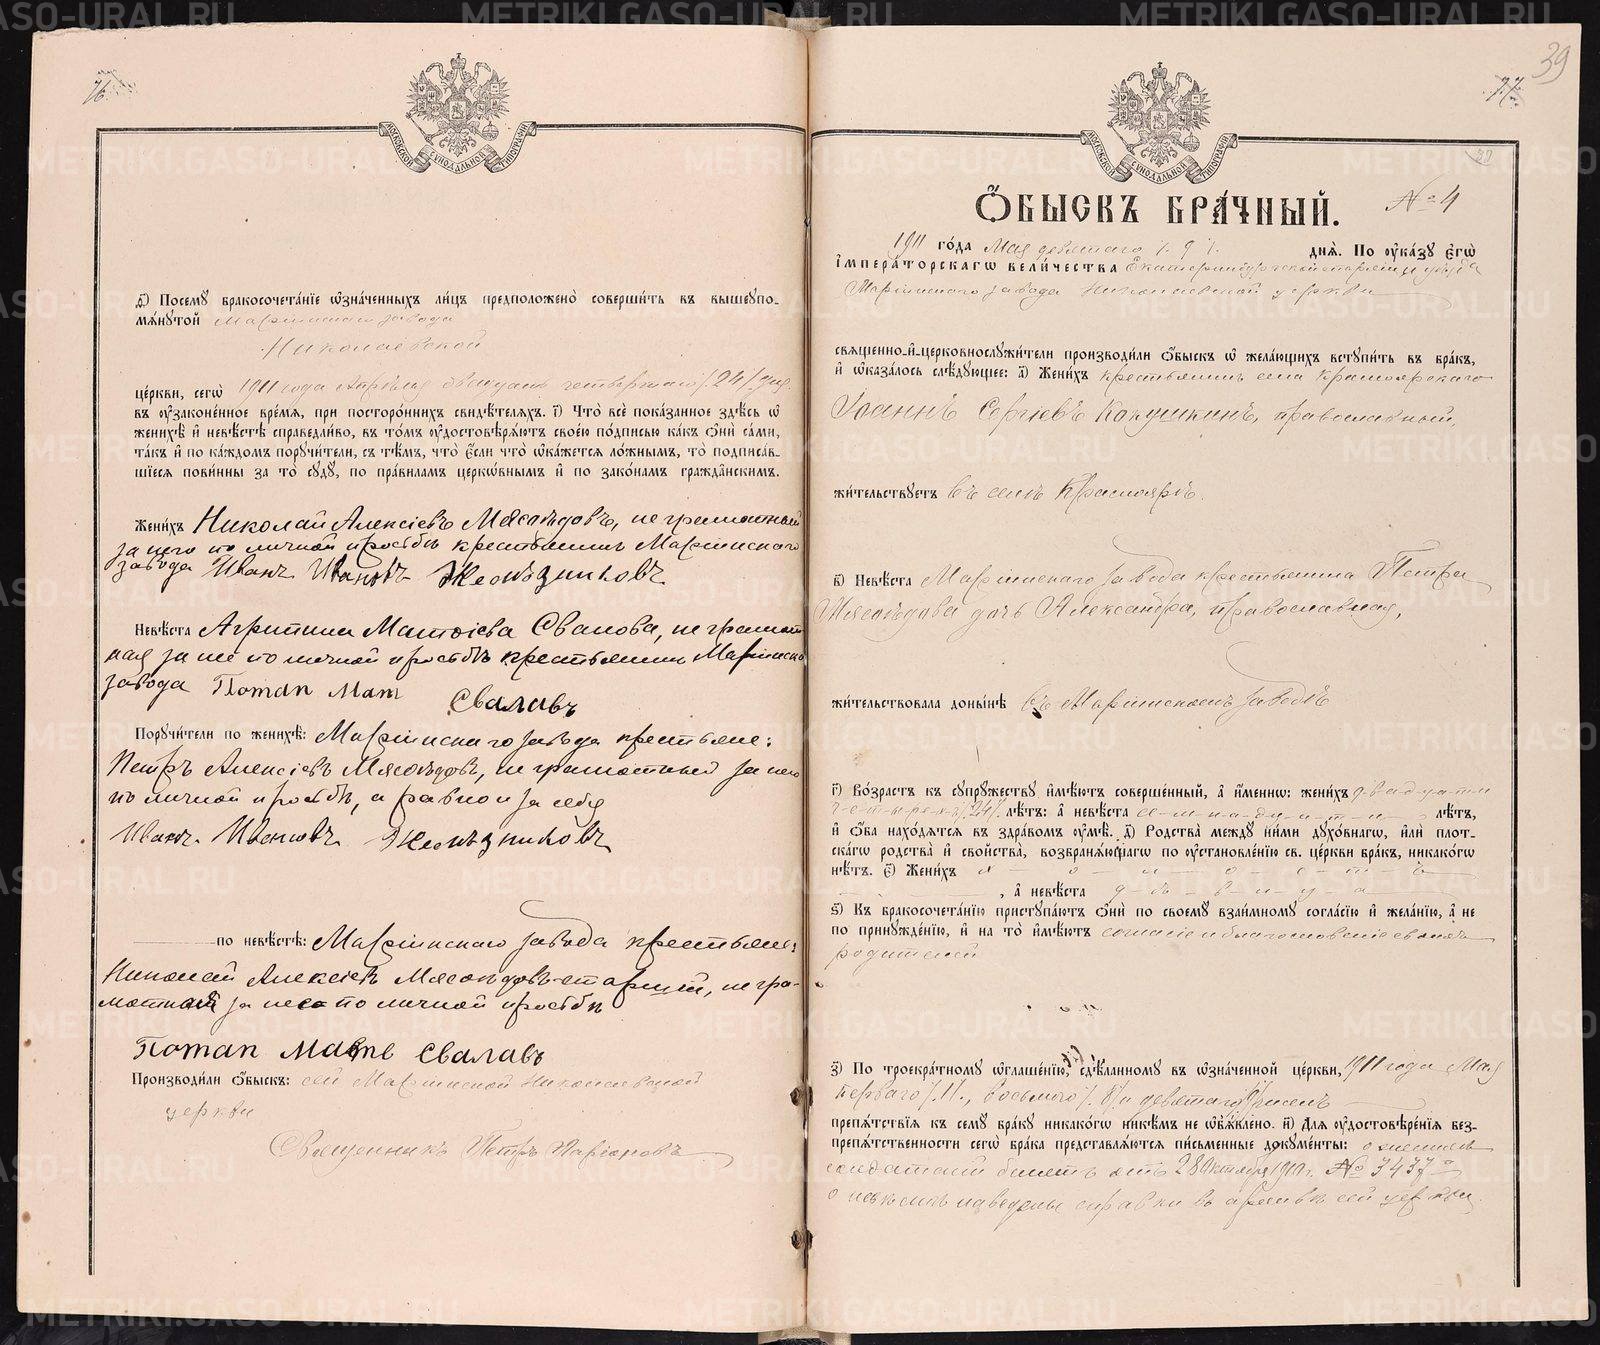 76
д҃) Посемꙋ бракосочетанїе ѡзначенныхъ лицъ предположено совершить въ вышеупо-
мянутой Марiинскаго завода
Николаевской
церкви, сегѡ 1911 года Апрѣля двадцать четвертаго /24/ дня.
въ оузаконенное время, при постороннихъ свидѣтеляхъ. і҃) Что всѐ показанное здѣсь ѡ
женихѣ и невѣстѣ справедливо, въ томъ оудостовѣряютъ своею подписью какъ ѻни сами,
такъ и по каждомъ поручители, съ тѣмъ, что если что ѡкажется ложнымъ, то подписав-
шїеся повинны за то сꙋдꙋ, по правиламъ церкѡвнымъ и по законамъ гражданскимъ.
Женихъ Николай Алексiевъ Мясоѣдовъ, неграмотный
за него по личной просьбѣ крестьянинъ Марiинскаго
завода Иванъ Ивановъ Желѣзниковъ
Невѣста Агрипина Матѳiева Свалова, неграмот
ная за нее по личной просьбѣ крестьянинъ Марiинска
завода Потап Мат Свалавъ
Поручители по женихѣ: Марiинскаго завода крестьяне:
Петръ Алексiевъ Мясоѣдовъ, неграмотный за него
по личной просьбѣ, а равно и за себя
Иванъ Ивановъ Желѣзниковъ
по невѣстѣ: Марiинскаго завода крестьяне:
Николай Алексiевъ Мясоѣдовъ старшiй, негра-
мотный за него по личной просьбѣ
Потап Матв Свалавъ
Производили ѻбыскъ: сей Марiинской Николаевской
церкви
Священникъ Петръ Ларiоновъ
39
77
МОСКОВСКОЙ СИНОДАЛЬНОЙ ТИПОГРАФІИ
ѺБЫСКЪ БРАЧНЫЙ. № 4
1911 года Мая девятаго /9/ дня. По оуказꙋ Егѡ
Императорскагѡ Величества Екатеринбургской епархiи и уѣзда
Марiинскаго завода Николаевской церкви
священно-и-церковнослꙋжители производили ѻбыскъ ѡ желающихъ встꙋпить въ бракъ,
и ѡказалось слѣдꙋющее: а҃) Женихъ крестьянинъ села Красноярскаго
Iоаннъ Сергiевъ Кокушкинъ, православный,
жительствꙋетъ въ селѣ Красноярѣ.
в҃) Невѣста Марiинскаго завода крестьянина Петра
Мясоѣдова дочь Александра, православная,
жительствовала донынѣ въ Марiинскомъ заводѣ
г҃) Возрастъ къ сꙋпрꙋжествꙋ имѣютъ совершенный, а именнѡ: женихъ двадцати
четырехъ /24/ лѣтъ: а невѣста се-м-на-д-ц-а-т-и лѣтъ,
и ѻба находятся въ здравомъ оумѣ. д҃) Родства между ними дꙋховнагѡ, или плот-
скагѡ родства и свойства, возбраняющагѡ по оустановленїю св. церкви бракъ, никакогѡ
нѣтъ. е҃) Женихъ х-о-л-о-с-т-ъ
, а невѣста д-ѣ-в-и-ц-а
ѕ҃) Къ бракосочетанїю пристꙋпаютъ ѻни по своемꙋ взаимномꙋ согласїю и желанїю, а не
по принꙋжденїю, и на то имѣютъ согласiе и благословенiе своихъ
родителей
з҃) По троекратномꙋ ѡглашенїю, сдѣланномꙋ въ ѡзначенной церкви, 1911 года Мая
перваго /1/, восьмого /8/ и девятаго /9/ чиселъ
препятствїя къ семꙋ бракꙋ никакогѡ никѣмъ не ѡбъявлено. и҃) Для оудостовѣренїя без-
препятственности сегѡ брака представляются письменные докꙋменты: о женихѣ
солдатскiй билетъ отъ 28 Октября 1910 г. № 3437
о невѣстѣ наведены справки въ архивѣ сей церкви.
METRIKI.GASO-URAL.RU